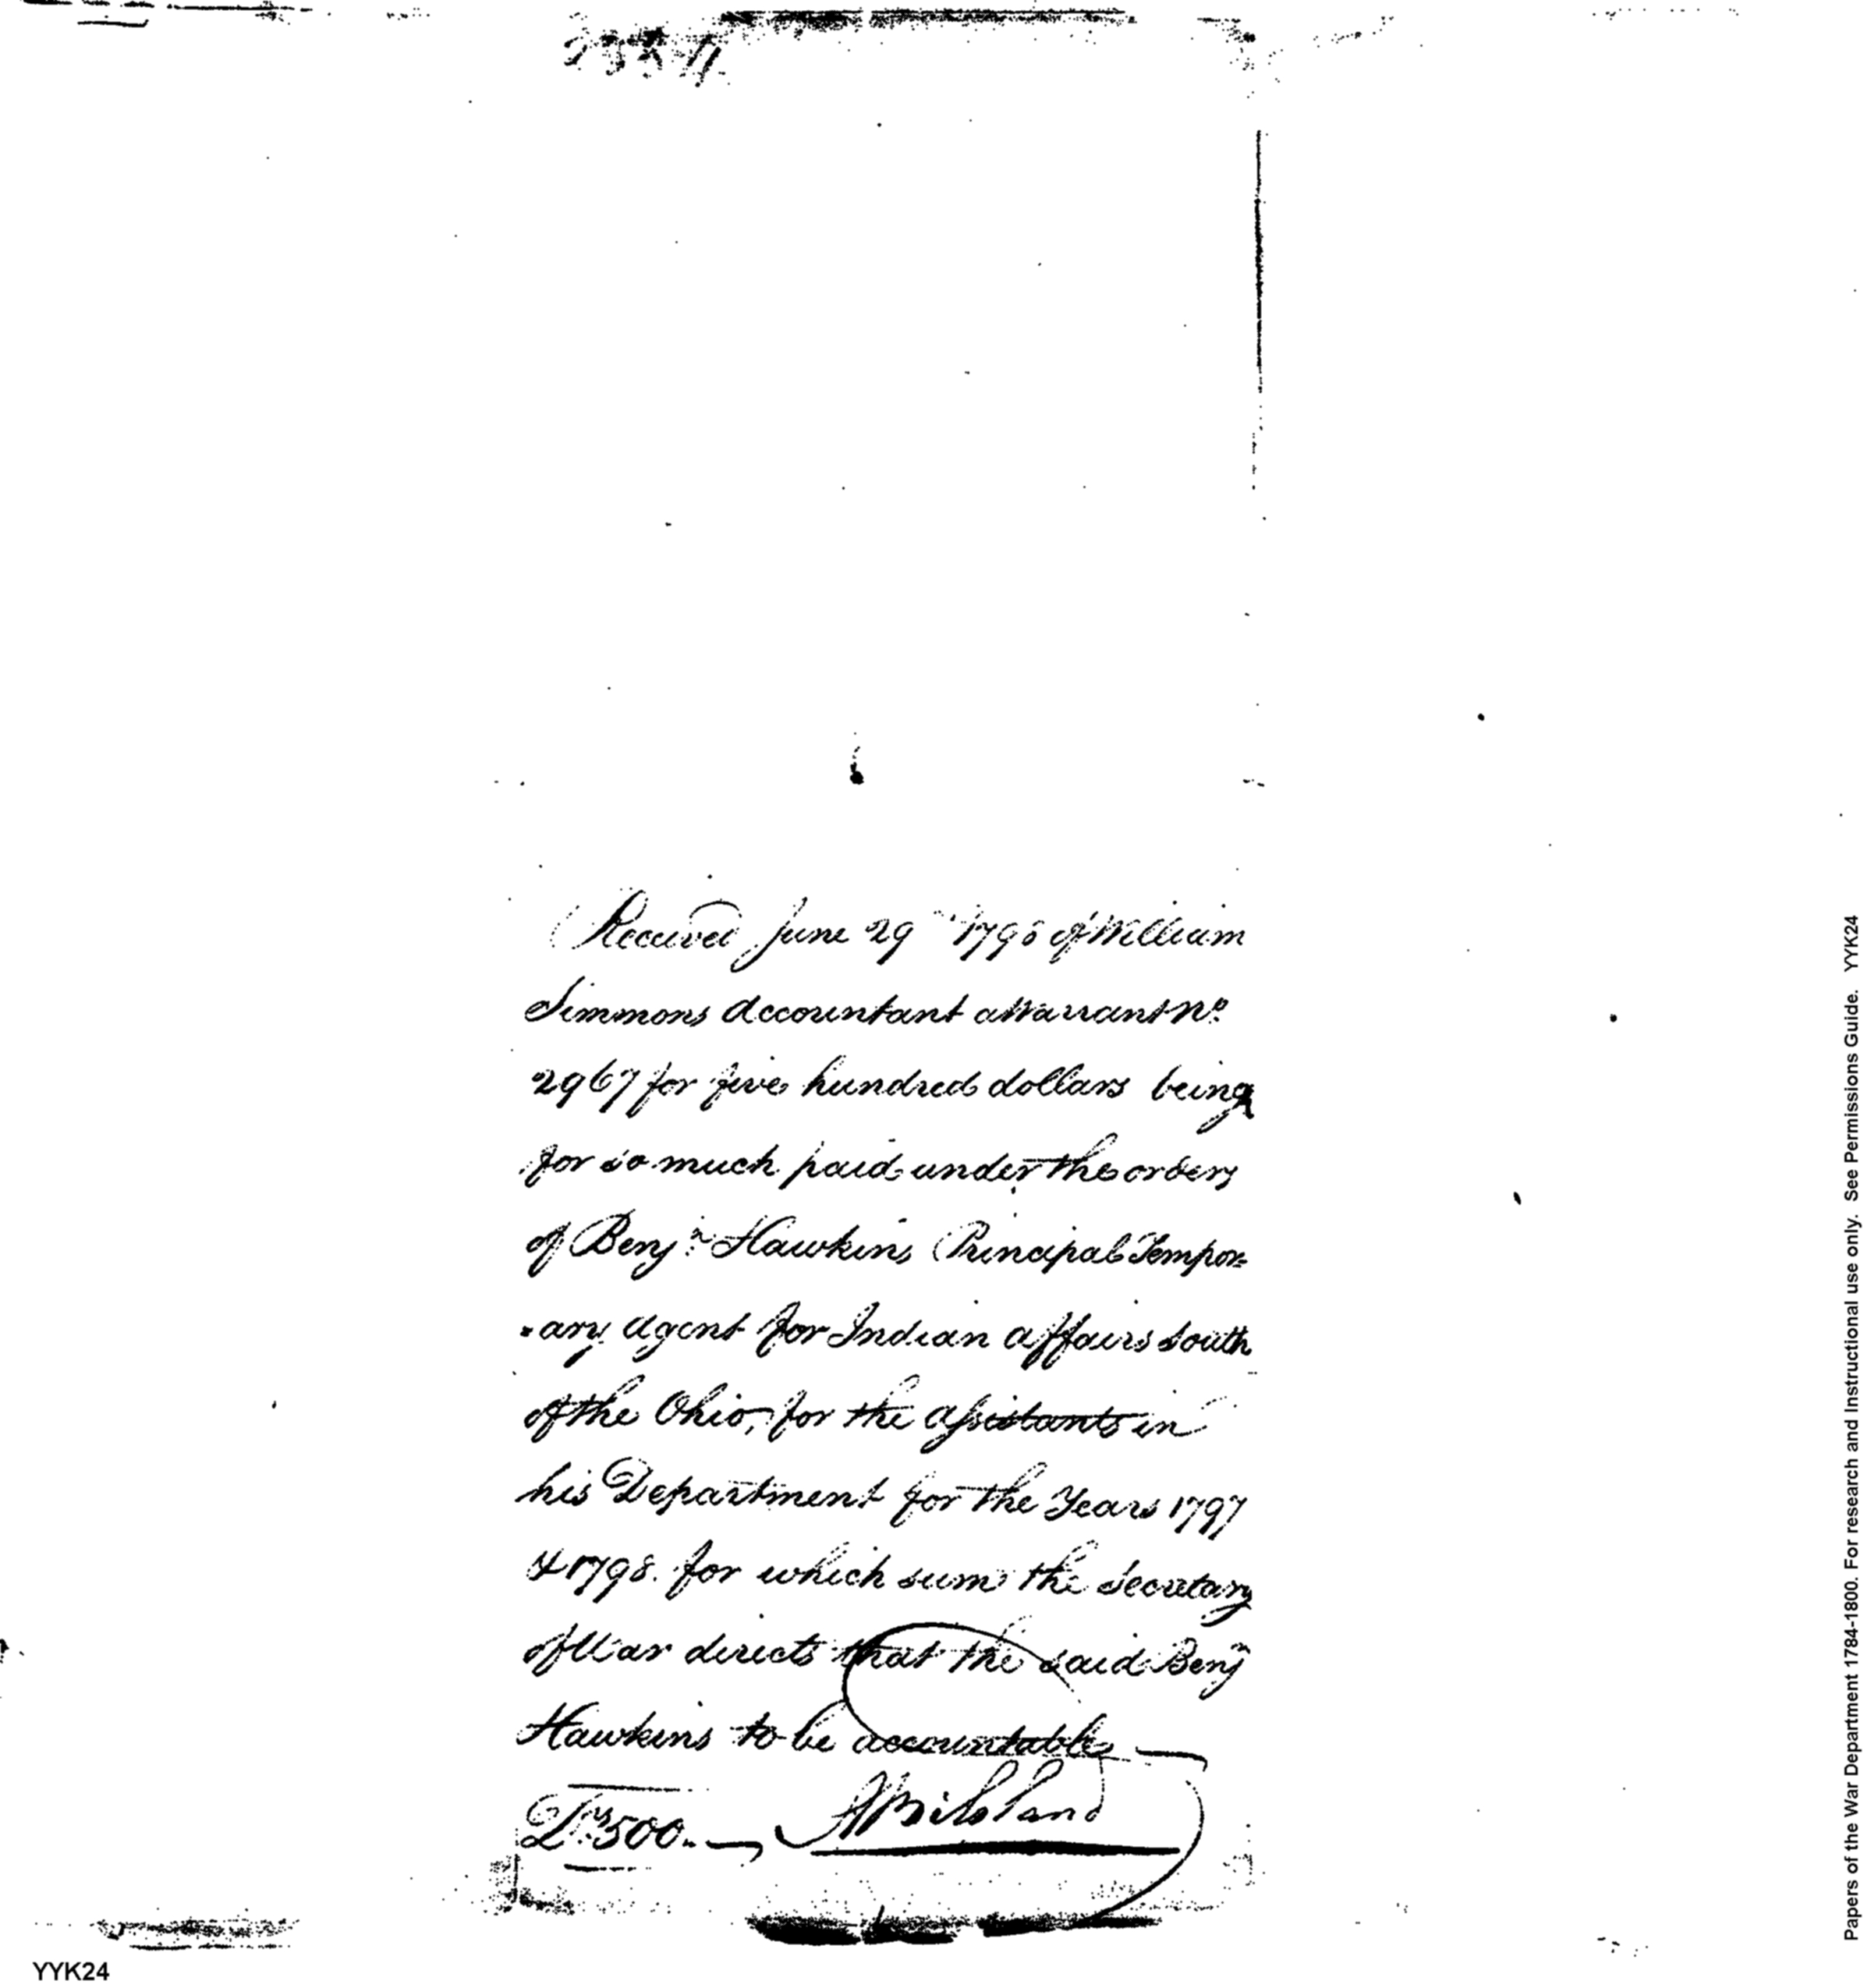 Received June 29th 1798 of William
Simmons Accountant a Warrant No.
2967 for five hundred dollars being
for so much paid under the orders
of Benjn. Hawkins Principal Tempor=
=ary Agent for Indian affairs South
of the Ohio, for the assistants in
his Department for the Years 1797
& 1798. for which sum the Secretary
of War directs that the said Benjn
Hawkins to be accountable
Drs. 500.
Papers of the War Department 1784-1800. For research and Instructional use only. See Permissions Guide. YYK24
YYK24